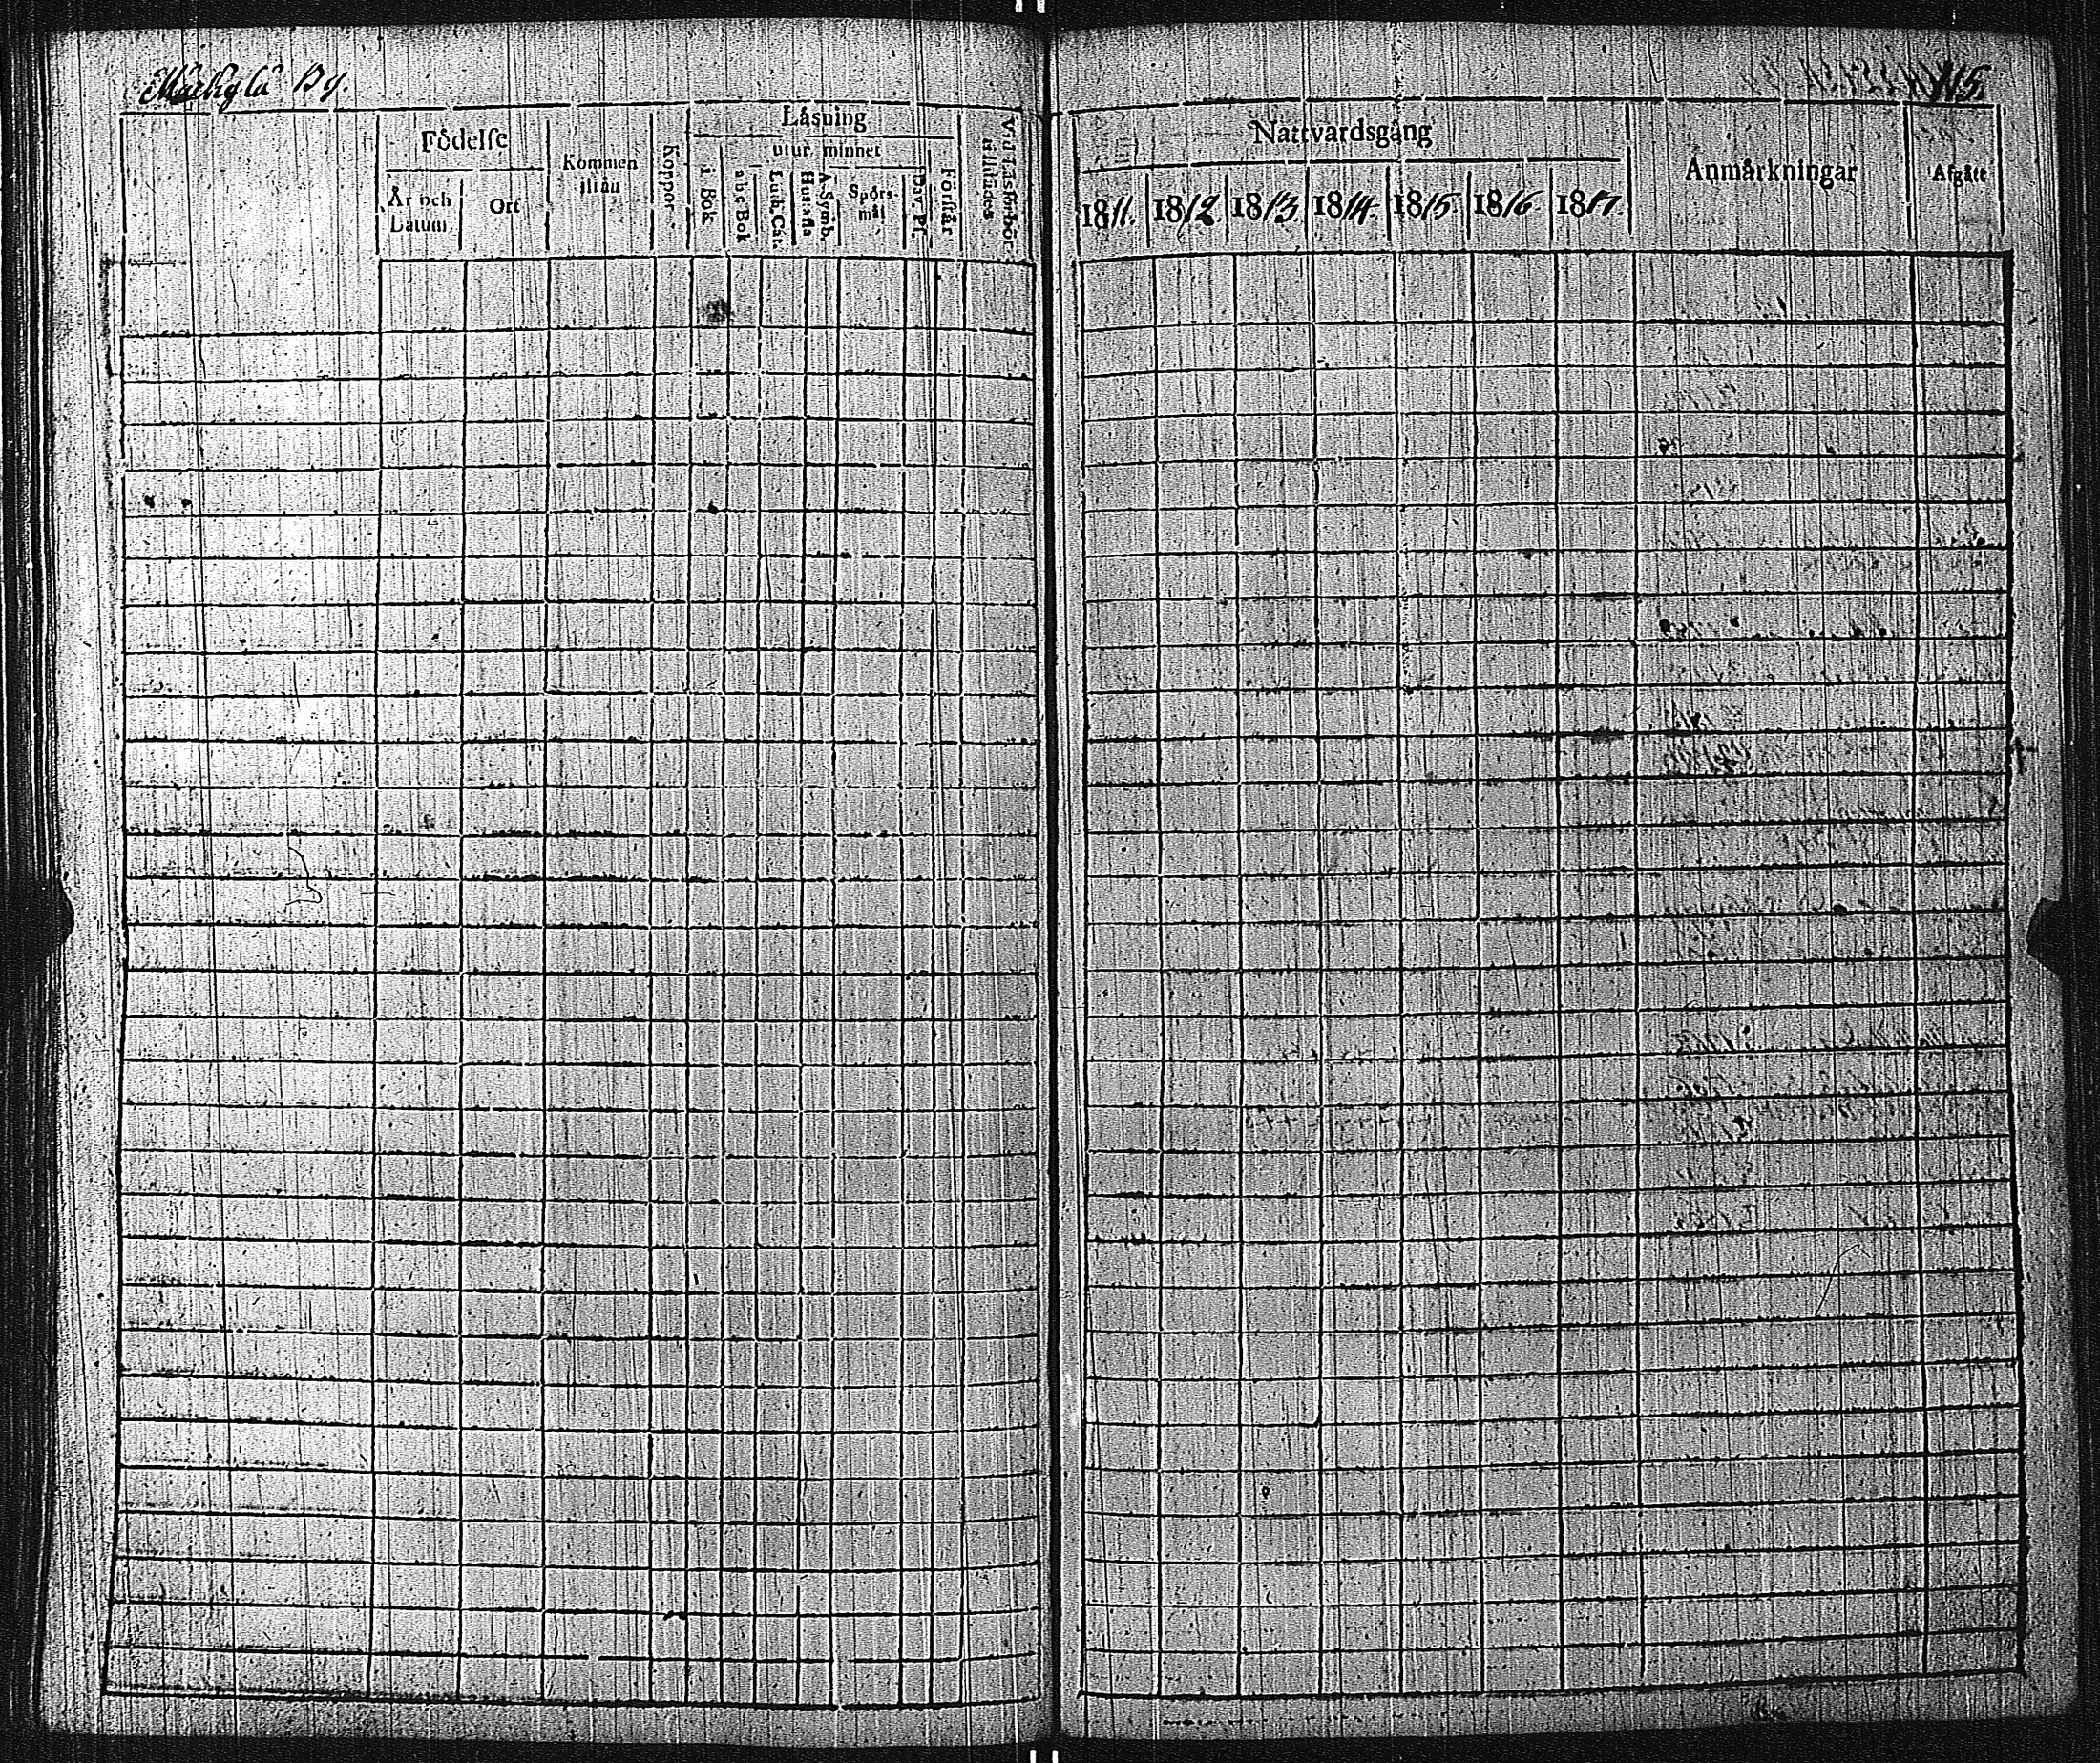 Mäkylä By.
115.
Födelse
År och Datum.
Ort
Kommen ifrån
Koppor.
Läsning
utur minnet
i Bok
abc Bok
Luth. Cat.
Hustafla
A. Symb.
Spörsmål
Dav. Ps.
Förstår
Vid Läsförhör tillstädes.
Nattvardsgång
1811.
1812.
1813.
1814.
1815.
1816.
1817.
Anmärkningar
Afgått